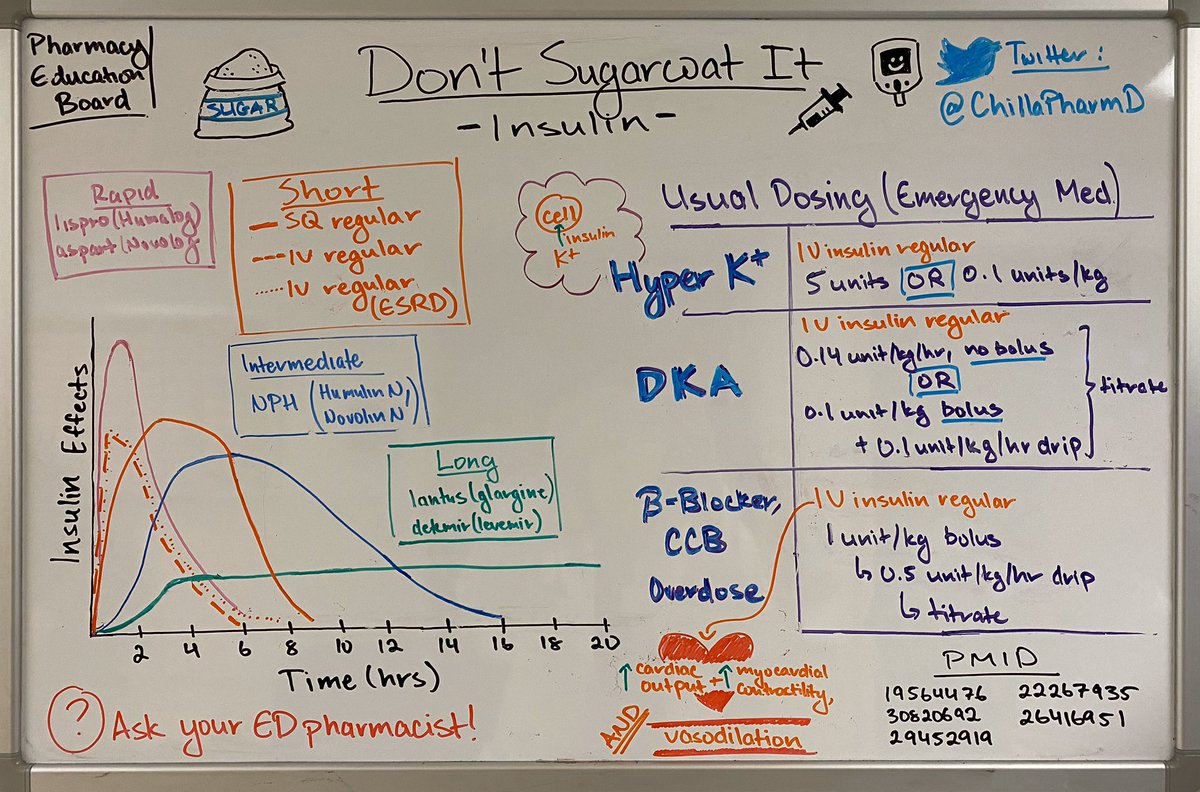 Pharmacy
Education
Board
SUGAR
Don't Sugarcoat It
-Insulin-
Twitter:
@ChillaPharmD
Rapid
lispro (Humalog)
aspart (Novolog)
Short
SQ regular
IV regular
IV regular
(ESRD)
Intermediate
NPH (Humulin N,
Novolin N)
Long
lantus (glargine)
detemir (levemir)
Insulin Effects
2 4 6 8 10 12 14 16 18 20
Time (hrs)
? Ask your ED pharmacist!
cell
↑ insulin
K+
Usual Dosing (Emergency Med)
Hyper K+
IV insulin regular
5 units OR 0.1 units/kg
DKA
IV insulin regular
0.14 unit/kg/hr, no bolus
OR
0.1 unit/kg bolus
+ 0.1 unit/kg/hr drip
titrate
β-Blocker,
CCB
Overdose
IV insulin regular
1 unit/kg bolus
↳ 0.5 unit/kg/hr drip
↳ titrate
↑ cardiac output + ↑ myocardial contractility,
AND
vasodilation
PMID
19564476 22267935
30820692 26416951
29452919